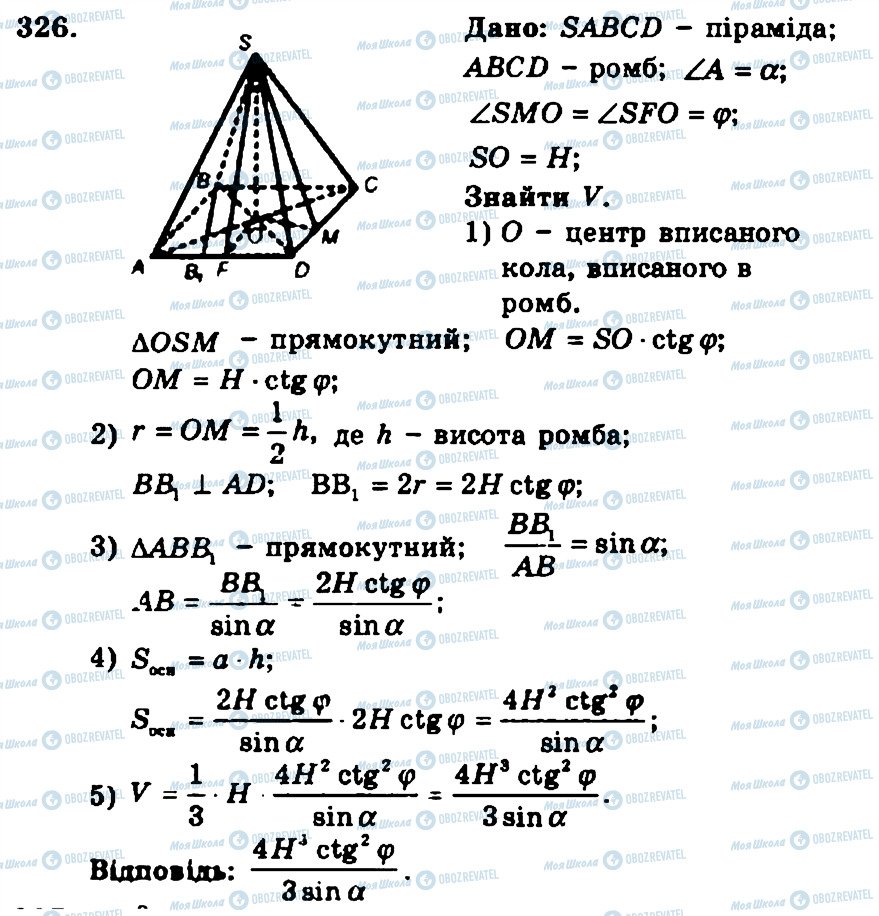 326.
Дано: SABCD – піраміда;
ABCD – ромб; ∠A = α;
∠SMO = ∠SFO = φ;
SO = H;
Знайти V.
1) O – центр вписаного
кола, вписаного в
ромб.
S
B
C
O
M
A
B₁
F
D
ΔOSM – прямокутний; OM = SO · ctg φ;
OM = H · ctg φ;
2) r = OM = 1/2 h, де h – висота ромба;
BB₁ ⊥ AD; BB₁ = 2r = 2H ctg φ;
3) ΔABB₁ – прямокутний; BB₁/AB = sin α;
AB = BB₁/sin α = 2H ctg φ/sin α;
4) Sосн = a · h;
Sосн = 2H ctg φ/sin α · 2H ctg φ = 4H² ctg² φ/sin α;
5) V = 1/3 · H · 4H² ctg² φ/sin α = 4H³ ctg² φ/3 sin α.
Відповідь: 4H³ ctg² φ/3 sin α.
Моя Школа OBOZREVATEL